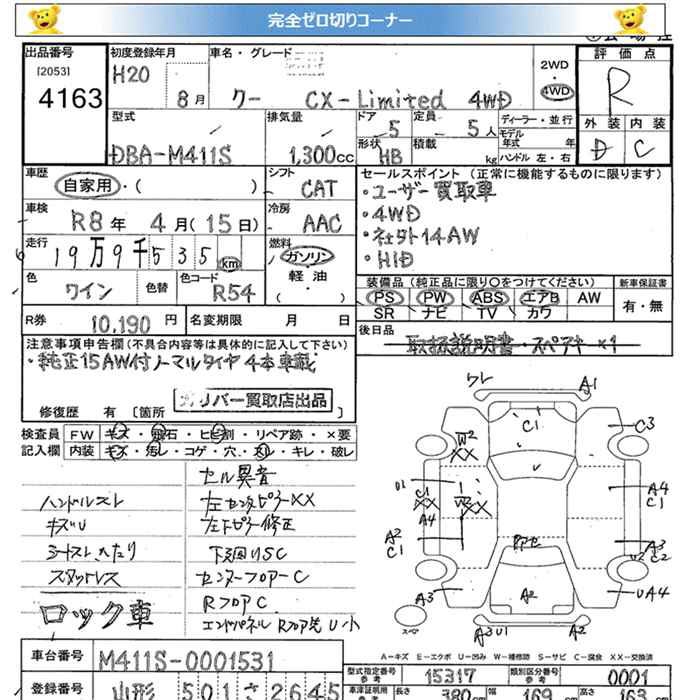 完全ゼロ切りコーナー
出品番号 初度登録年月 車名・グレード 評価点
[2053] 4163
H20 8月 クー CX-Limited 4WD
2WD・4WD R
型式 排気量 ドア 5 定員 5人 ディーラー・並行 外装 内装
DBA-M411S 1,300cc 形状 HB 積載 kg モデル年式 年式 ハンドル 左・右 D C
車歴 自家用・( ) シフト CAT セールスポイント(正常に機能するものに限ります)
・ユーザー買取車
車検 R8年 4月(15日) 冷房 AAC ・4WD
走行 19万9千535km 燃料 ガソリン・軽油・( ) 14AW
・HID
色 ワイン 色替 色コード R54
装備品(純正品に限り○をつけてください) 新車保証書
PS PW ABS エアB AW 有・無
SR ナビ TV カワ
R券 10,190円 名変期限 月 日 後日品
取扱説明書・スペアキー×1
注意事項申告欄(不具合内容等は具体的に記入して下さい)
・純正15AW付ノーマルタイヤ4本車載
ガリバー買取店出品
修復歴 有 [箇所 ]
検査員 FW キズ・飛石・ヒビ割・リペア跡・×要
記入欄 内装 キズ・汚レ・コゲ・穴・スレ・キレ・破レ
セル異音
ハンドルスレ 左センタピラーXX
キズU 左Fピラー修正
シートスレ、へたり 下廻りSC
スタットレス センターフロアーC
ロック車 RフロアC
エンドパネル Rフロア先U小
ワレ A1
C1 C3
W2 XX
U1 C1 XX A4 W XX A4 C1
A2 C1 A3 C2
A3 A2 UA4
スペア A3U1 A2
A-キズ E-エクボ U-凹み W-補修跡 S-サビ C-腐食 XX-交換済
車台番号 M411S-0001531
型式指定番号 参考 15317 類別区分番号 参考 0001
登録番号 山形 501 さ 2645 車検証明用 参考 長さ 380cm 幅 169cm 高さ 163cm